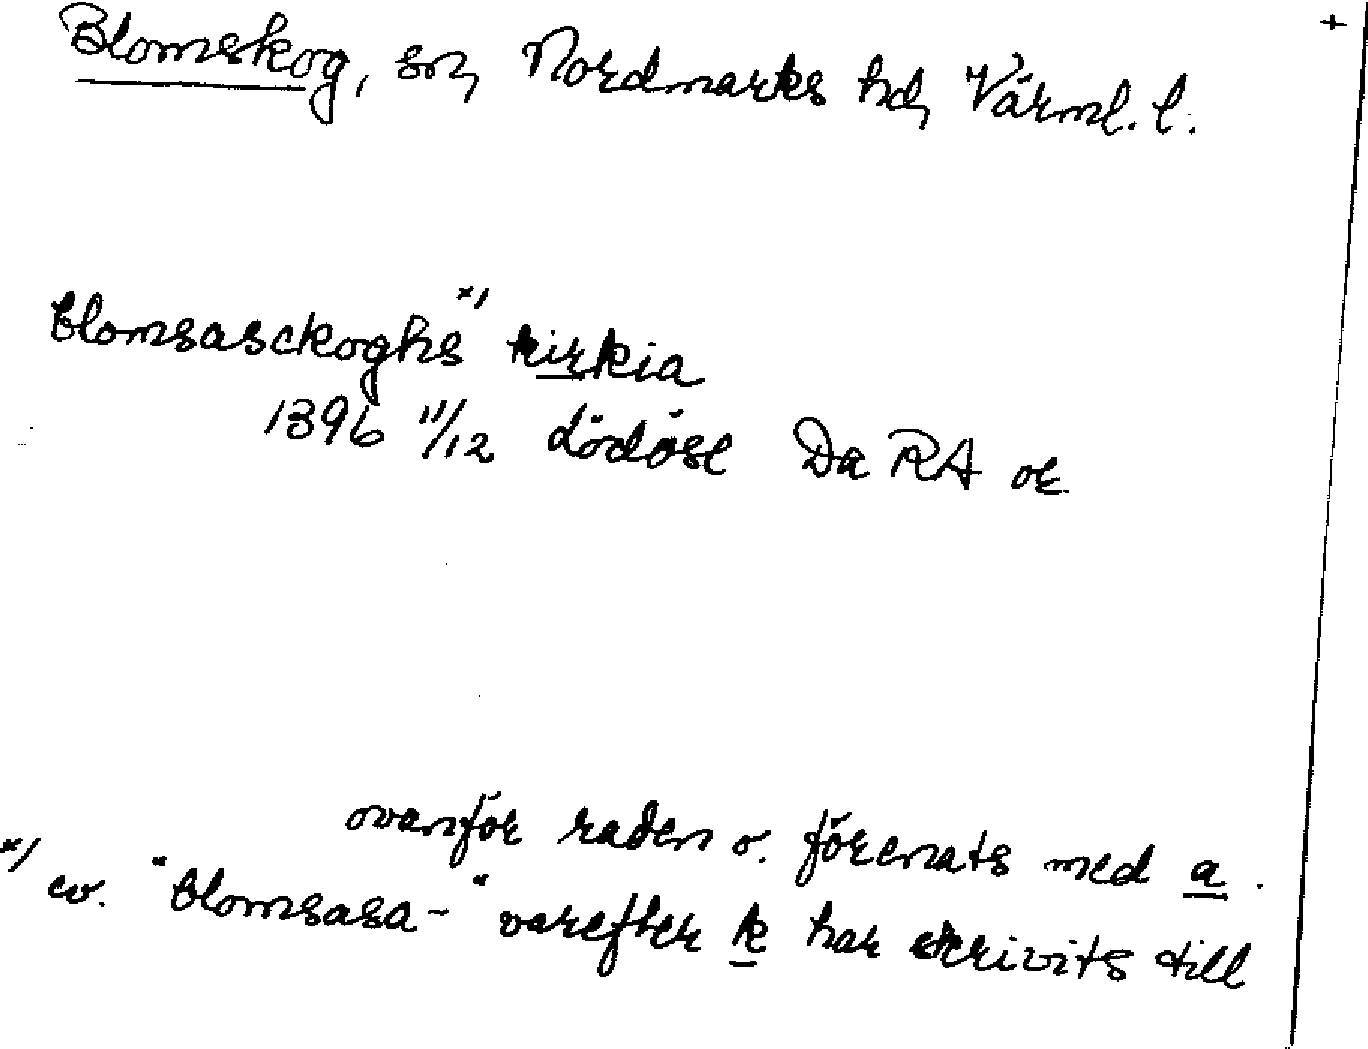 +
Blomskog, sn, Nordmarks hd, Värml. l.
blomsasckoghs x/ kirkia
1396 11/12 Lödöse Da RA or
ovanför raden o. förenats med a.
x/ ev. "blomsasa-" varefter k har skrivits till